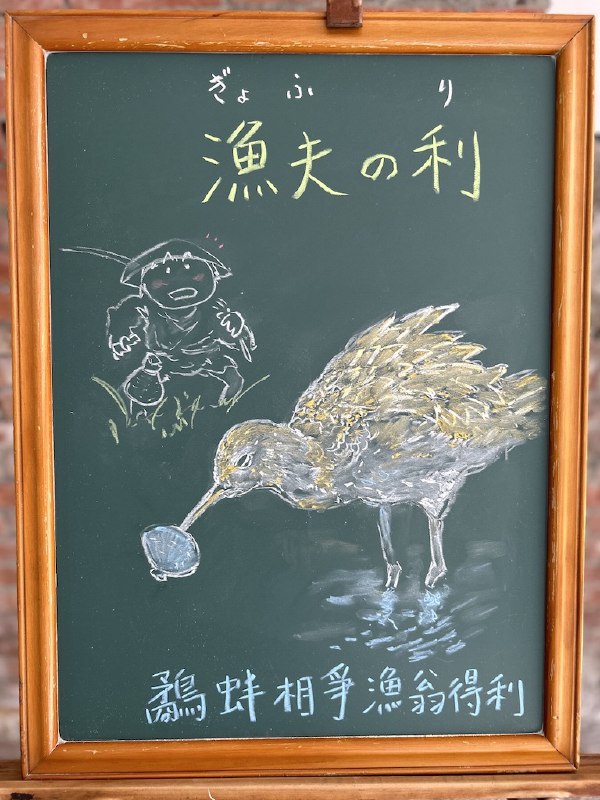 ぎょ ふ り
漁夫の利
鷸蚌相爭漁翁得利